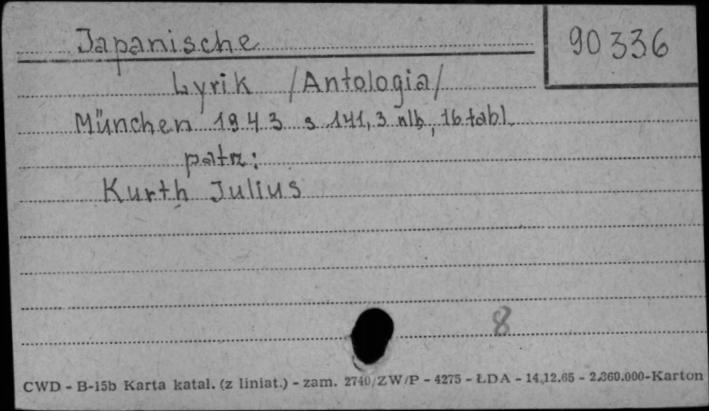 90336
Japanische
Lyrik /Antologia/
München 1943 s 141, 3 nlb, 16 tabl.
patrz:
Kurth Julius
8
CWD - B-15b Karta katal. (z liniat.) - zam. 2740/ZW/P - 4275 - ŁDA - 14.12.65 - 2.360.000-Karton